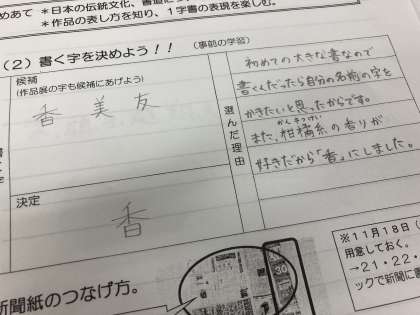 めあて ＊日本の伝統文化、書道に
＊作品の表し方を知り、１字書の表現を楽しむ。
（2）書く字を決めよう！！ （事前の学習）
候補
(作品展の字も候補にあげよう)
香 美 友
決定
香
選んだ理由
初めての大きな書なので
書くんだったら自分の名前の字を
かきたいと思ったからです。
かんきつけい
また、柑橘系の香りが
好きだから「香」にしました。
新聞紙のつなげ方。
※11月18日（
用意しておく。
→21・22・
ックで新聞に書
30